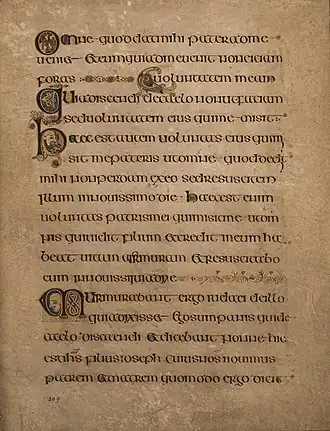 Omne quod dat mihi pater ad me
veniet et eum qui ad me venit non eiciam
foras voluntatem meam
Quia discendi de caelo non ut faciam
sed voluntatem eius qui me misit
Haec est autem voluntas eius qui mi
sit me patris ut omne quod dedit
mihi non perdam ex eo sed resuscitem
illum in novissimo die Haec est enim
voluntas patris mei qui misit me ut om
nis qui videt filium et credit in eum ha
beat vitam aeternam et resuscitabo
eum in novissimo die
Murmurabant ergo iudaei de illo
quia dixisset ego sum panis qui de
caelo discendi et dicebant nonne hic
est ihs filius ioseph cuius nos novimus
patrem et matrem quomodo ergo dicit
309